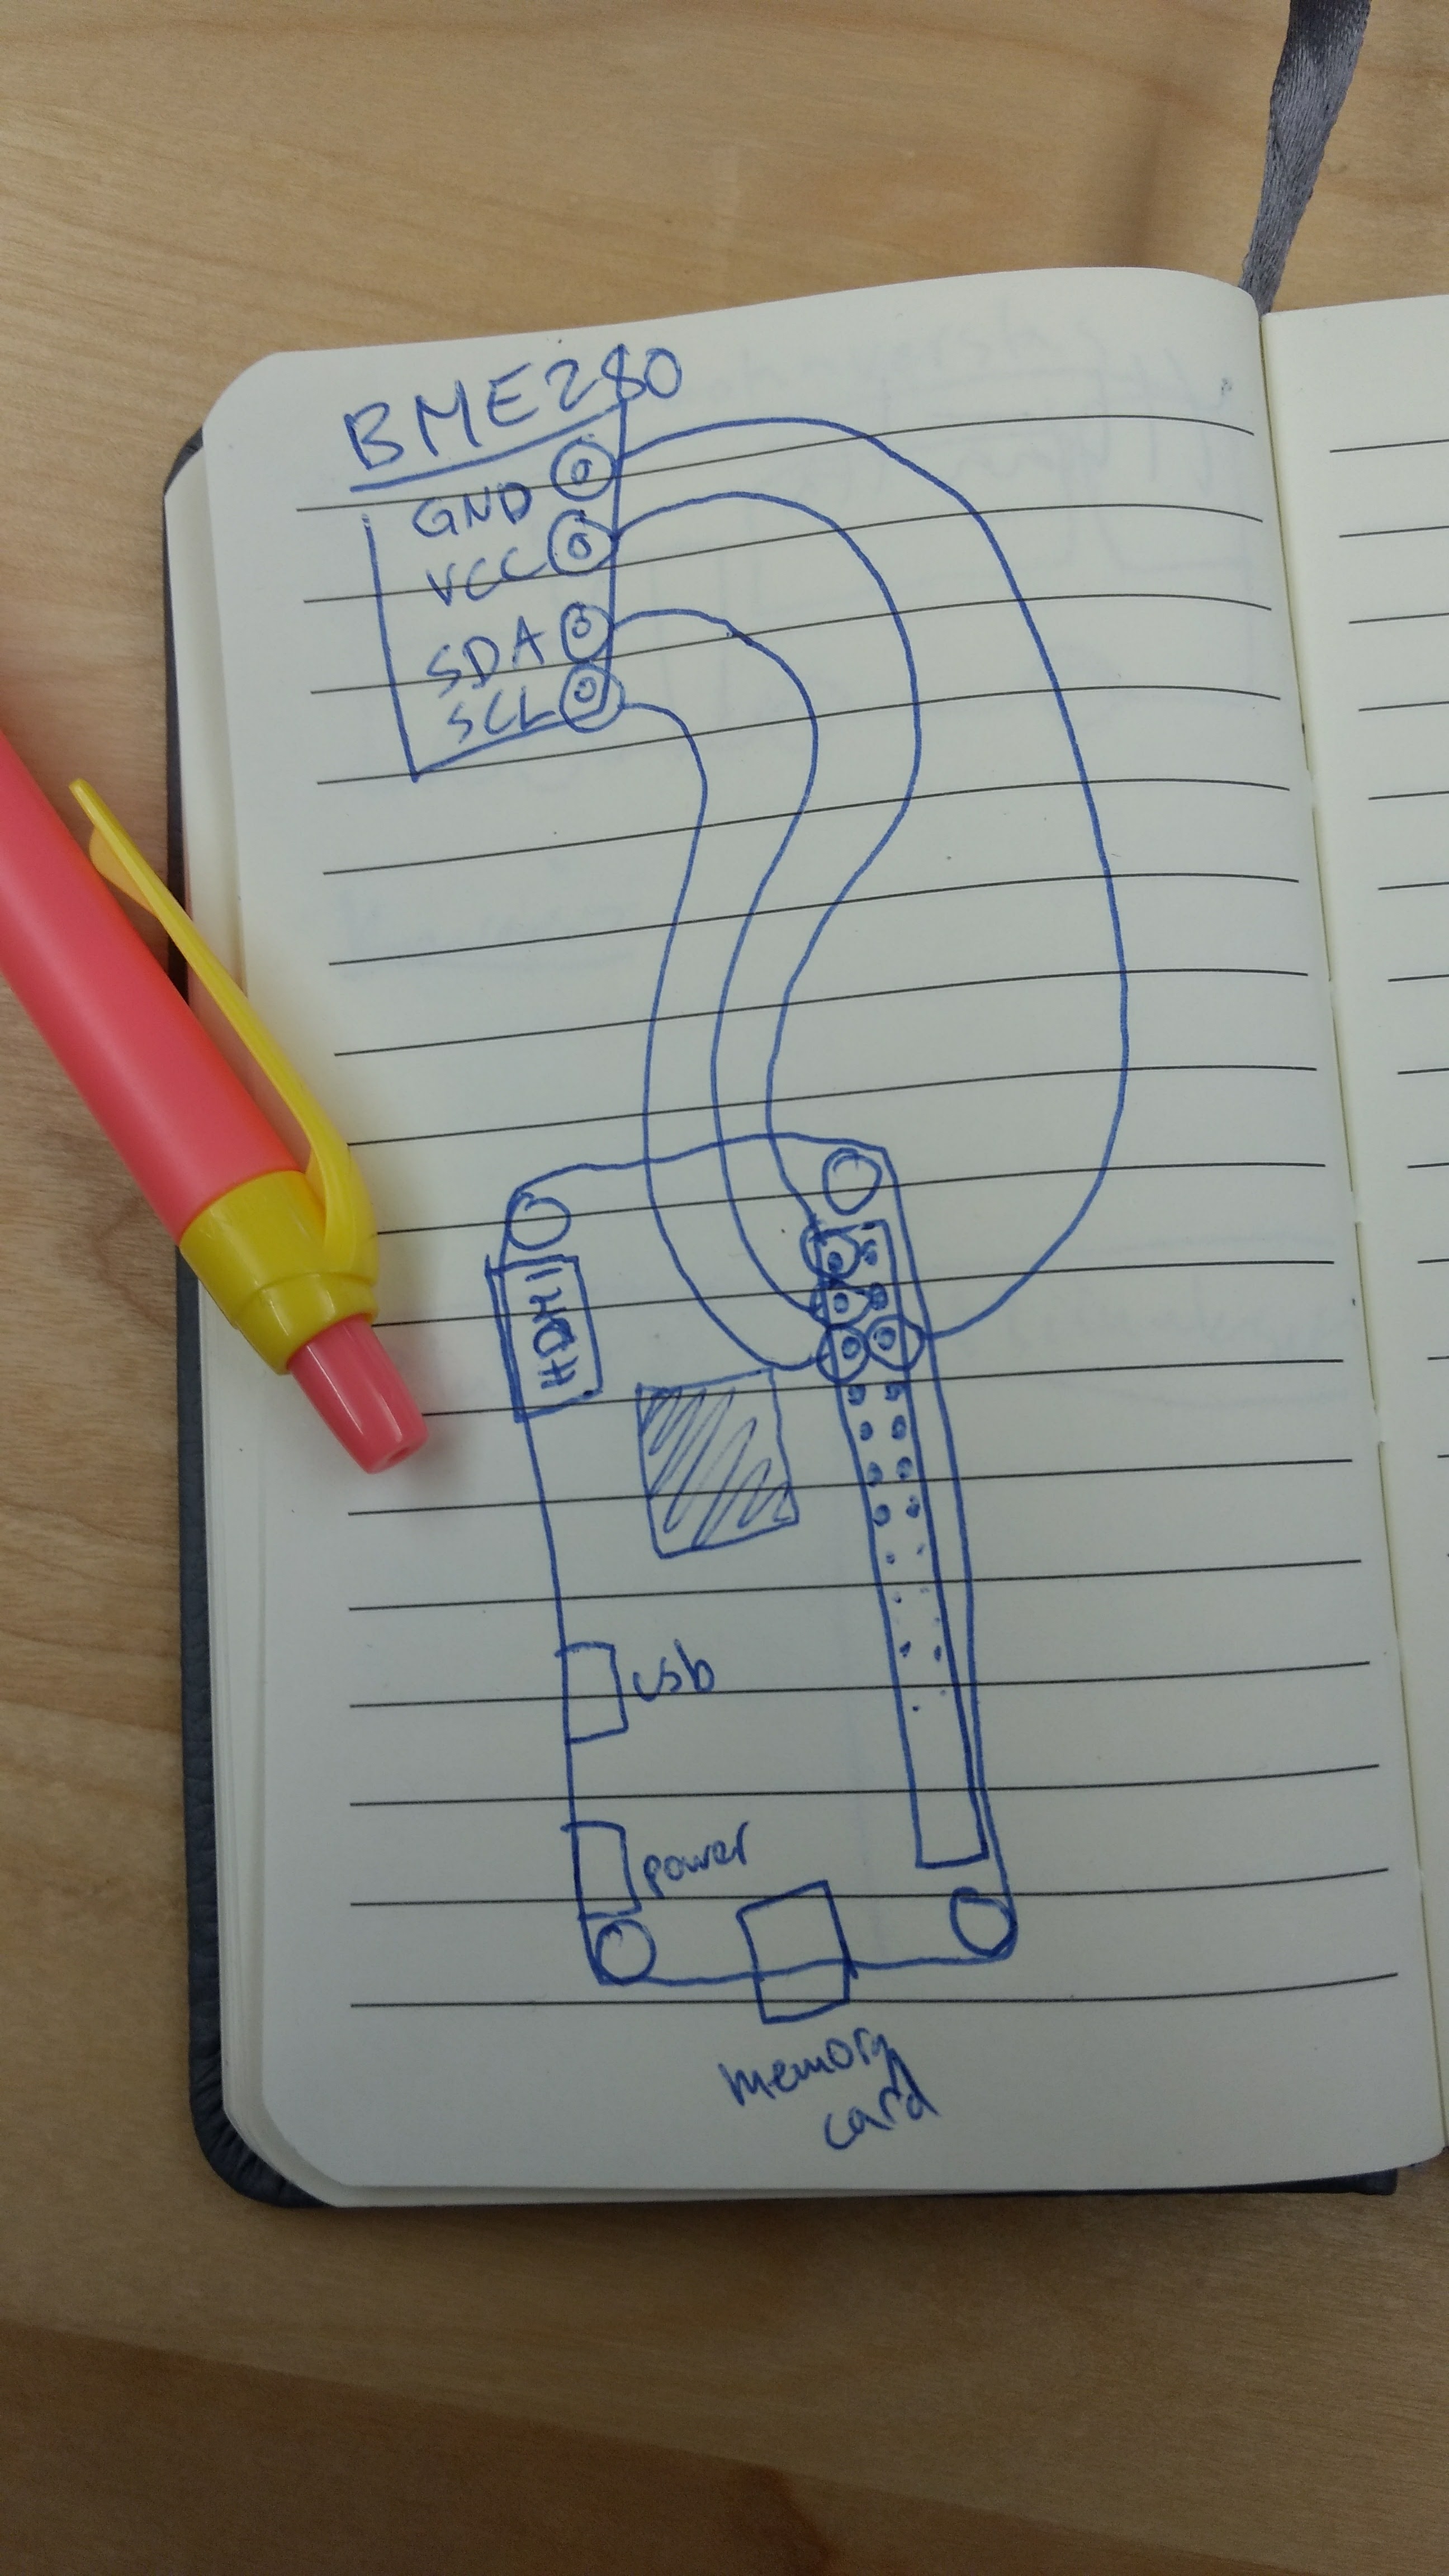 BME280
GND
VCC
SDA
SCL
HDMI
usb
power
memory
card